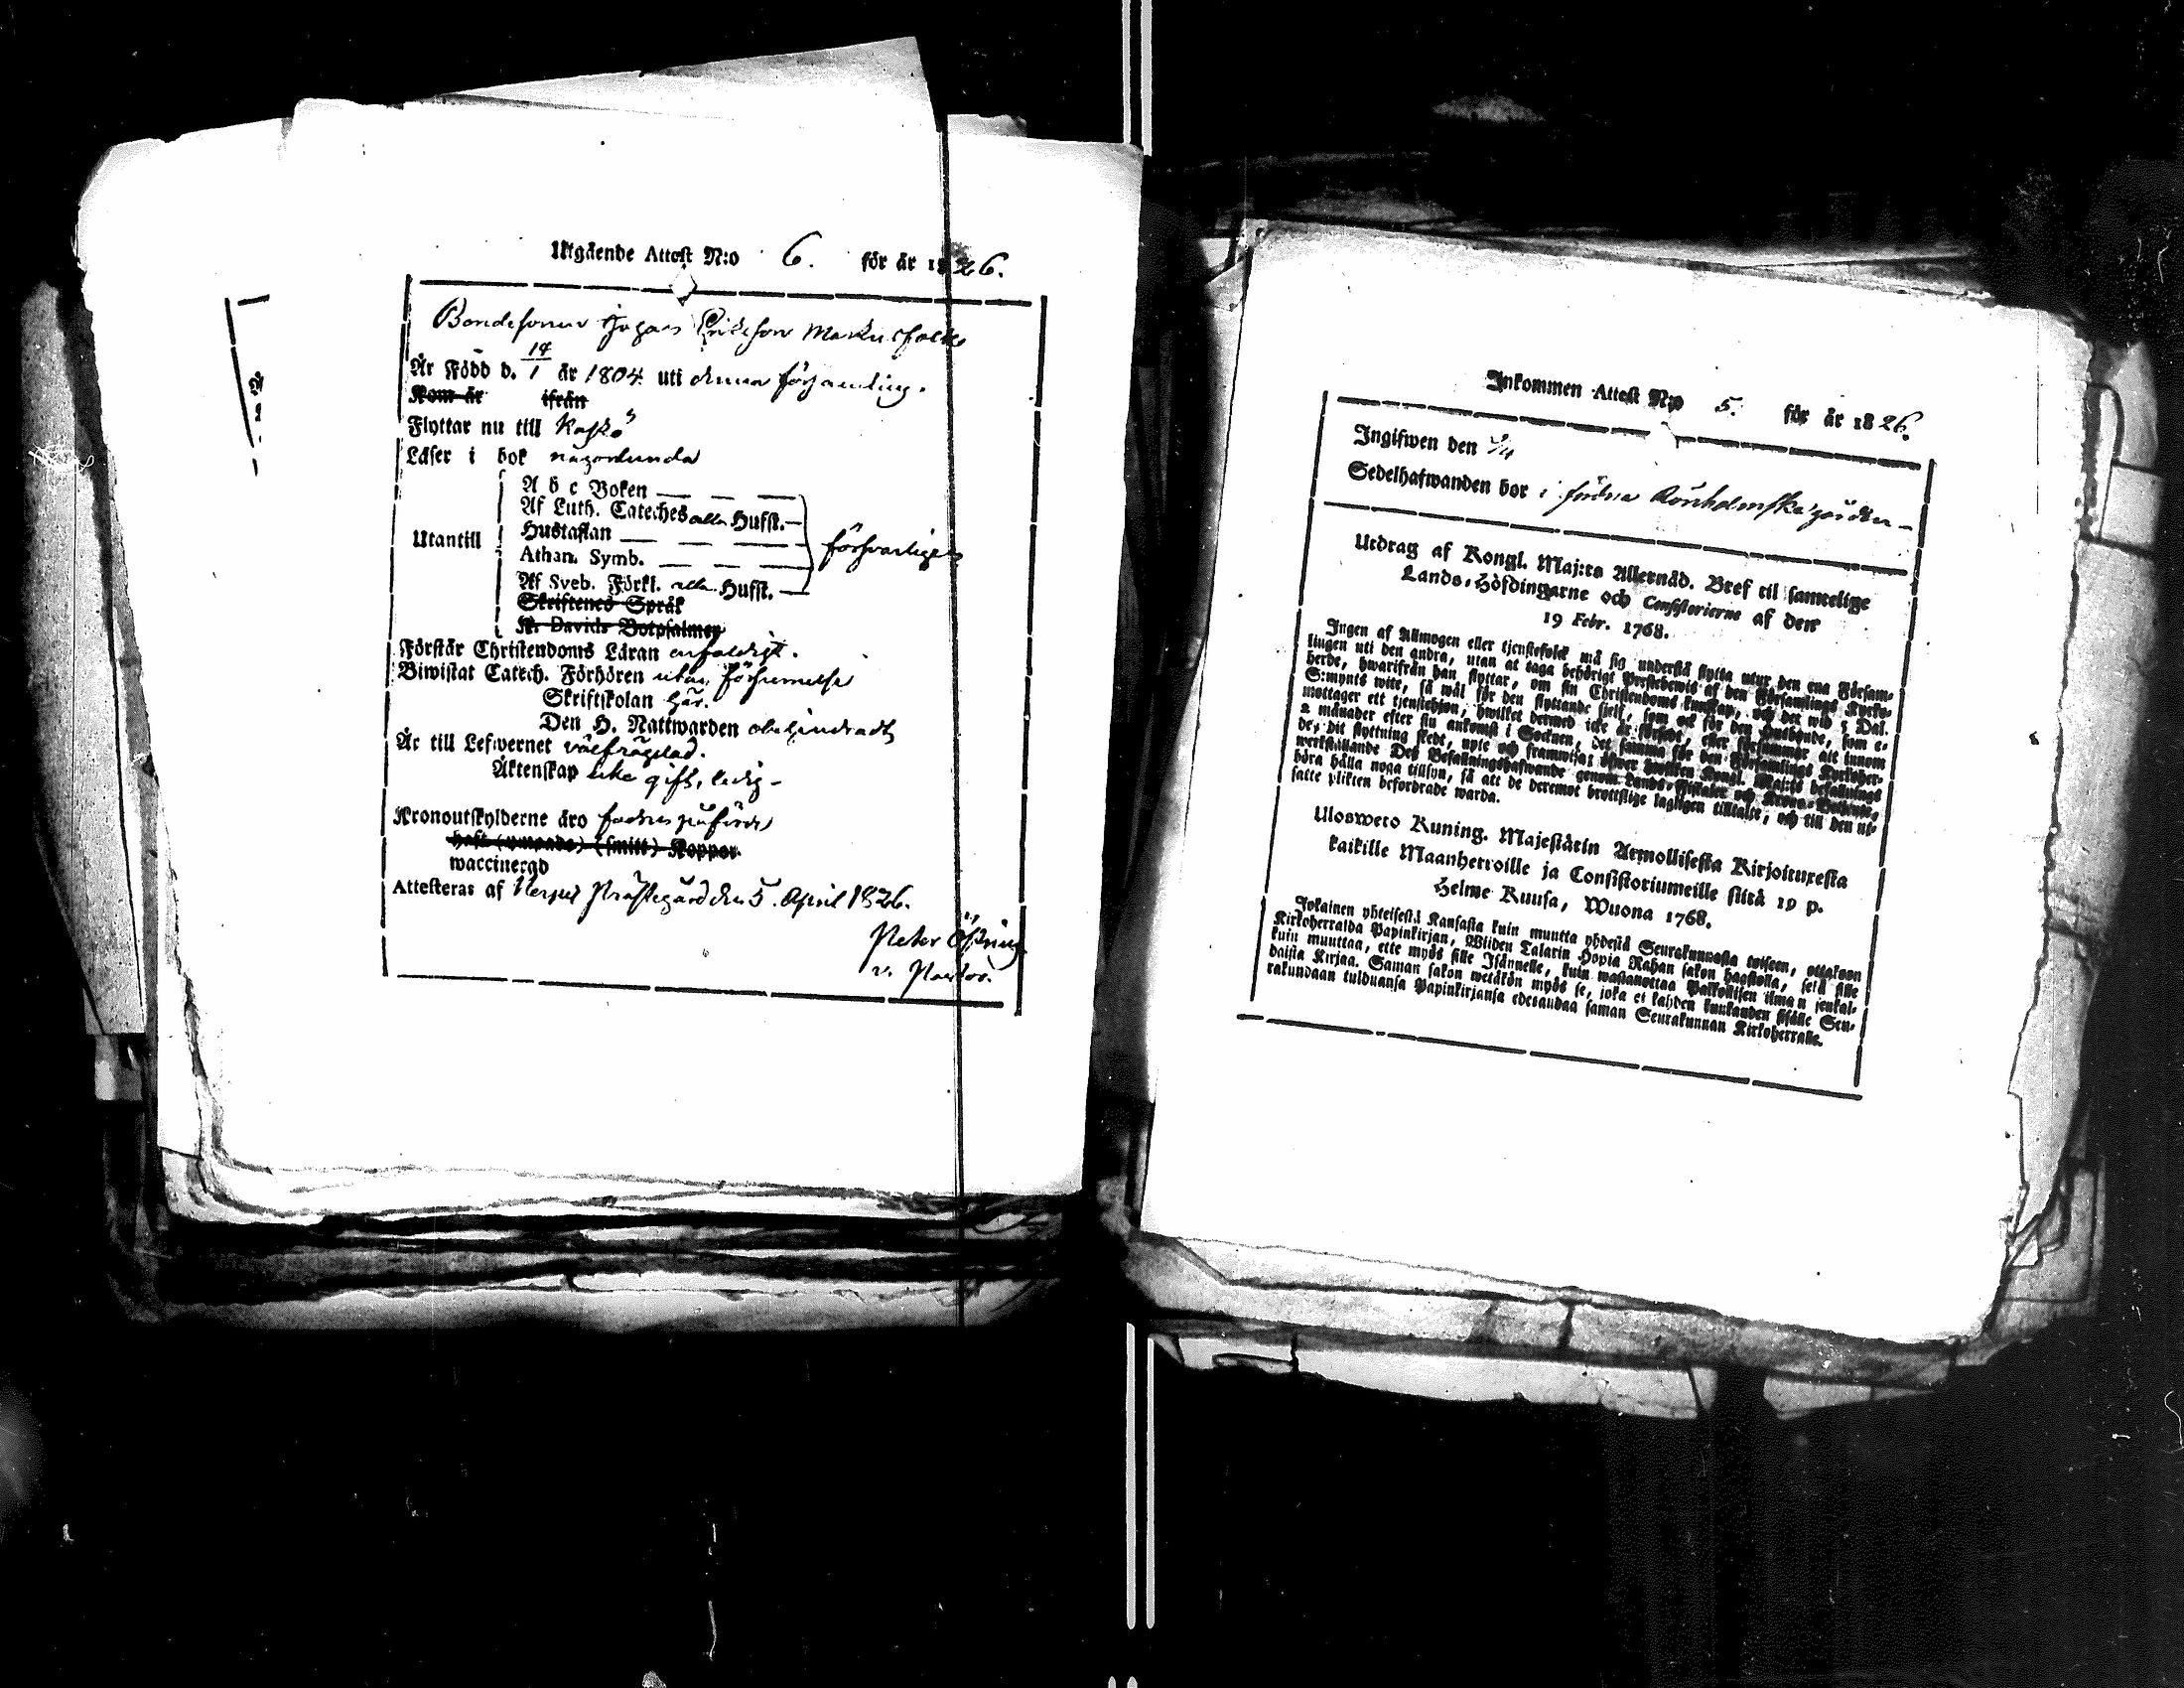 Utgående Attest N:o 6. för år 1826.
Bondesonen Johan Erikson Markusfolk
Är Född d. 14/1 år 1804 uti denna församling.
Kom år ifrån
Flyttar nu till Kaskö
Läser i bok någorlunda
Utantill
A b c Boken
Af Luth. Cateches alla Hufst.
Hustaflan
Athan. Symb.
Af Sveb. Förkl. alla Hufst.
försvarligen
Skriftenes Språk
K. Davids Botpsalmer
Förstår Christendoms Läran enfaldigt.
Biwistat Catech. Förhören utan försummelse
Skriftskolan här.
Den H. Nattwarden obehindradt
Är till Lefwernet välfrägdad.
Äktenskap icke gift, ledig -
Kronoutskylderne äro fadren påförde
haft (ympade) (smitt) Koppor.
waccinerad
Attesteras af Nerpes Prästegård den 5. April 1826.
Peter Östring
v. Pastor.
Inkommen Attest N:o 5. för år 1826.
Ingifwen den
Sedelhafwanden bor i södra Rönholmska gården -
Utdrag af Kongl. Maj:ts Allernåd. Bref til samtelige
Lands-Höfdingarne och Consistorierne af den
19 Febr. 1768.
Ingen af Allmogen eller tjenstefolck må sig understå flytta utur den ena Försam-
lingen uti den andra, utan at taga behörigt Prestebewis af den Församlings Kyrko-
herde, hwarifrån han flyttar, om sin Christendoms kunskap, och det wid 5 Dal.
S:mynts wite, så wäl för den flyttande sjelf, som ock för den Husbonde, som e-
mottager ett tjenstehjon, hwilket dermed icke är försedt, eller försummar att innom
2 månader efter sin ankomst i Socknen, det samma för den Församlings Kyrkoher-
de, dit flyttning skedt, upte och framwisa; öfwer hwilken Kongl. Maj:ts befallnings
werkställande Dess Befallningshafwande genom Lands-Fiskaler och Krono-Betjente,
böra hålla noga tillsyn, så att de deremot brottslige lagligen tilltalte, och till den ut-
satte plikten befordrade warda.
Ulosweto Kuning. Majestätin Armollisesta Kirjoituxesta
kaikille Maanherroille ja Consistoriumeille siitä 19 p.
Helme Kuusa, Wuona 1768.
Jokainen yhteisestä Kansasta kuin muutta yhdestä Seurakunnasta toiseen, ottakoon
Kirkoherralda Papinkirjan, Wiiden Talarin Hopia Rahan sakon haastolla, sekä sille
kuin muuttaa, ette myös sille Isännelle, kuin wastanottaa Palkollisen ilman senkal-
daista Kirjaa. Saman sakon wetäkön myös se, joka ei kahden kuukauden sisälle Seu-
rakundaan tulduansa Papinkirjansa edesandaa saman Seurakunnan Kirkoherralle.